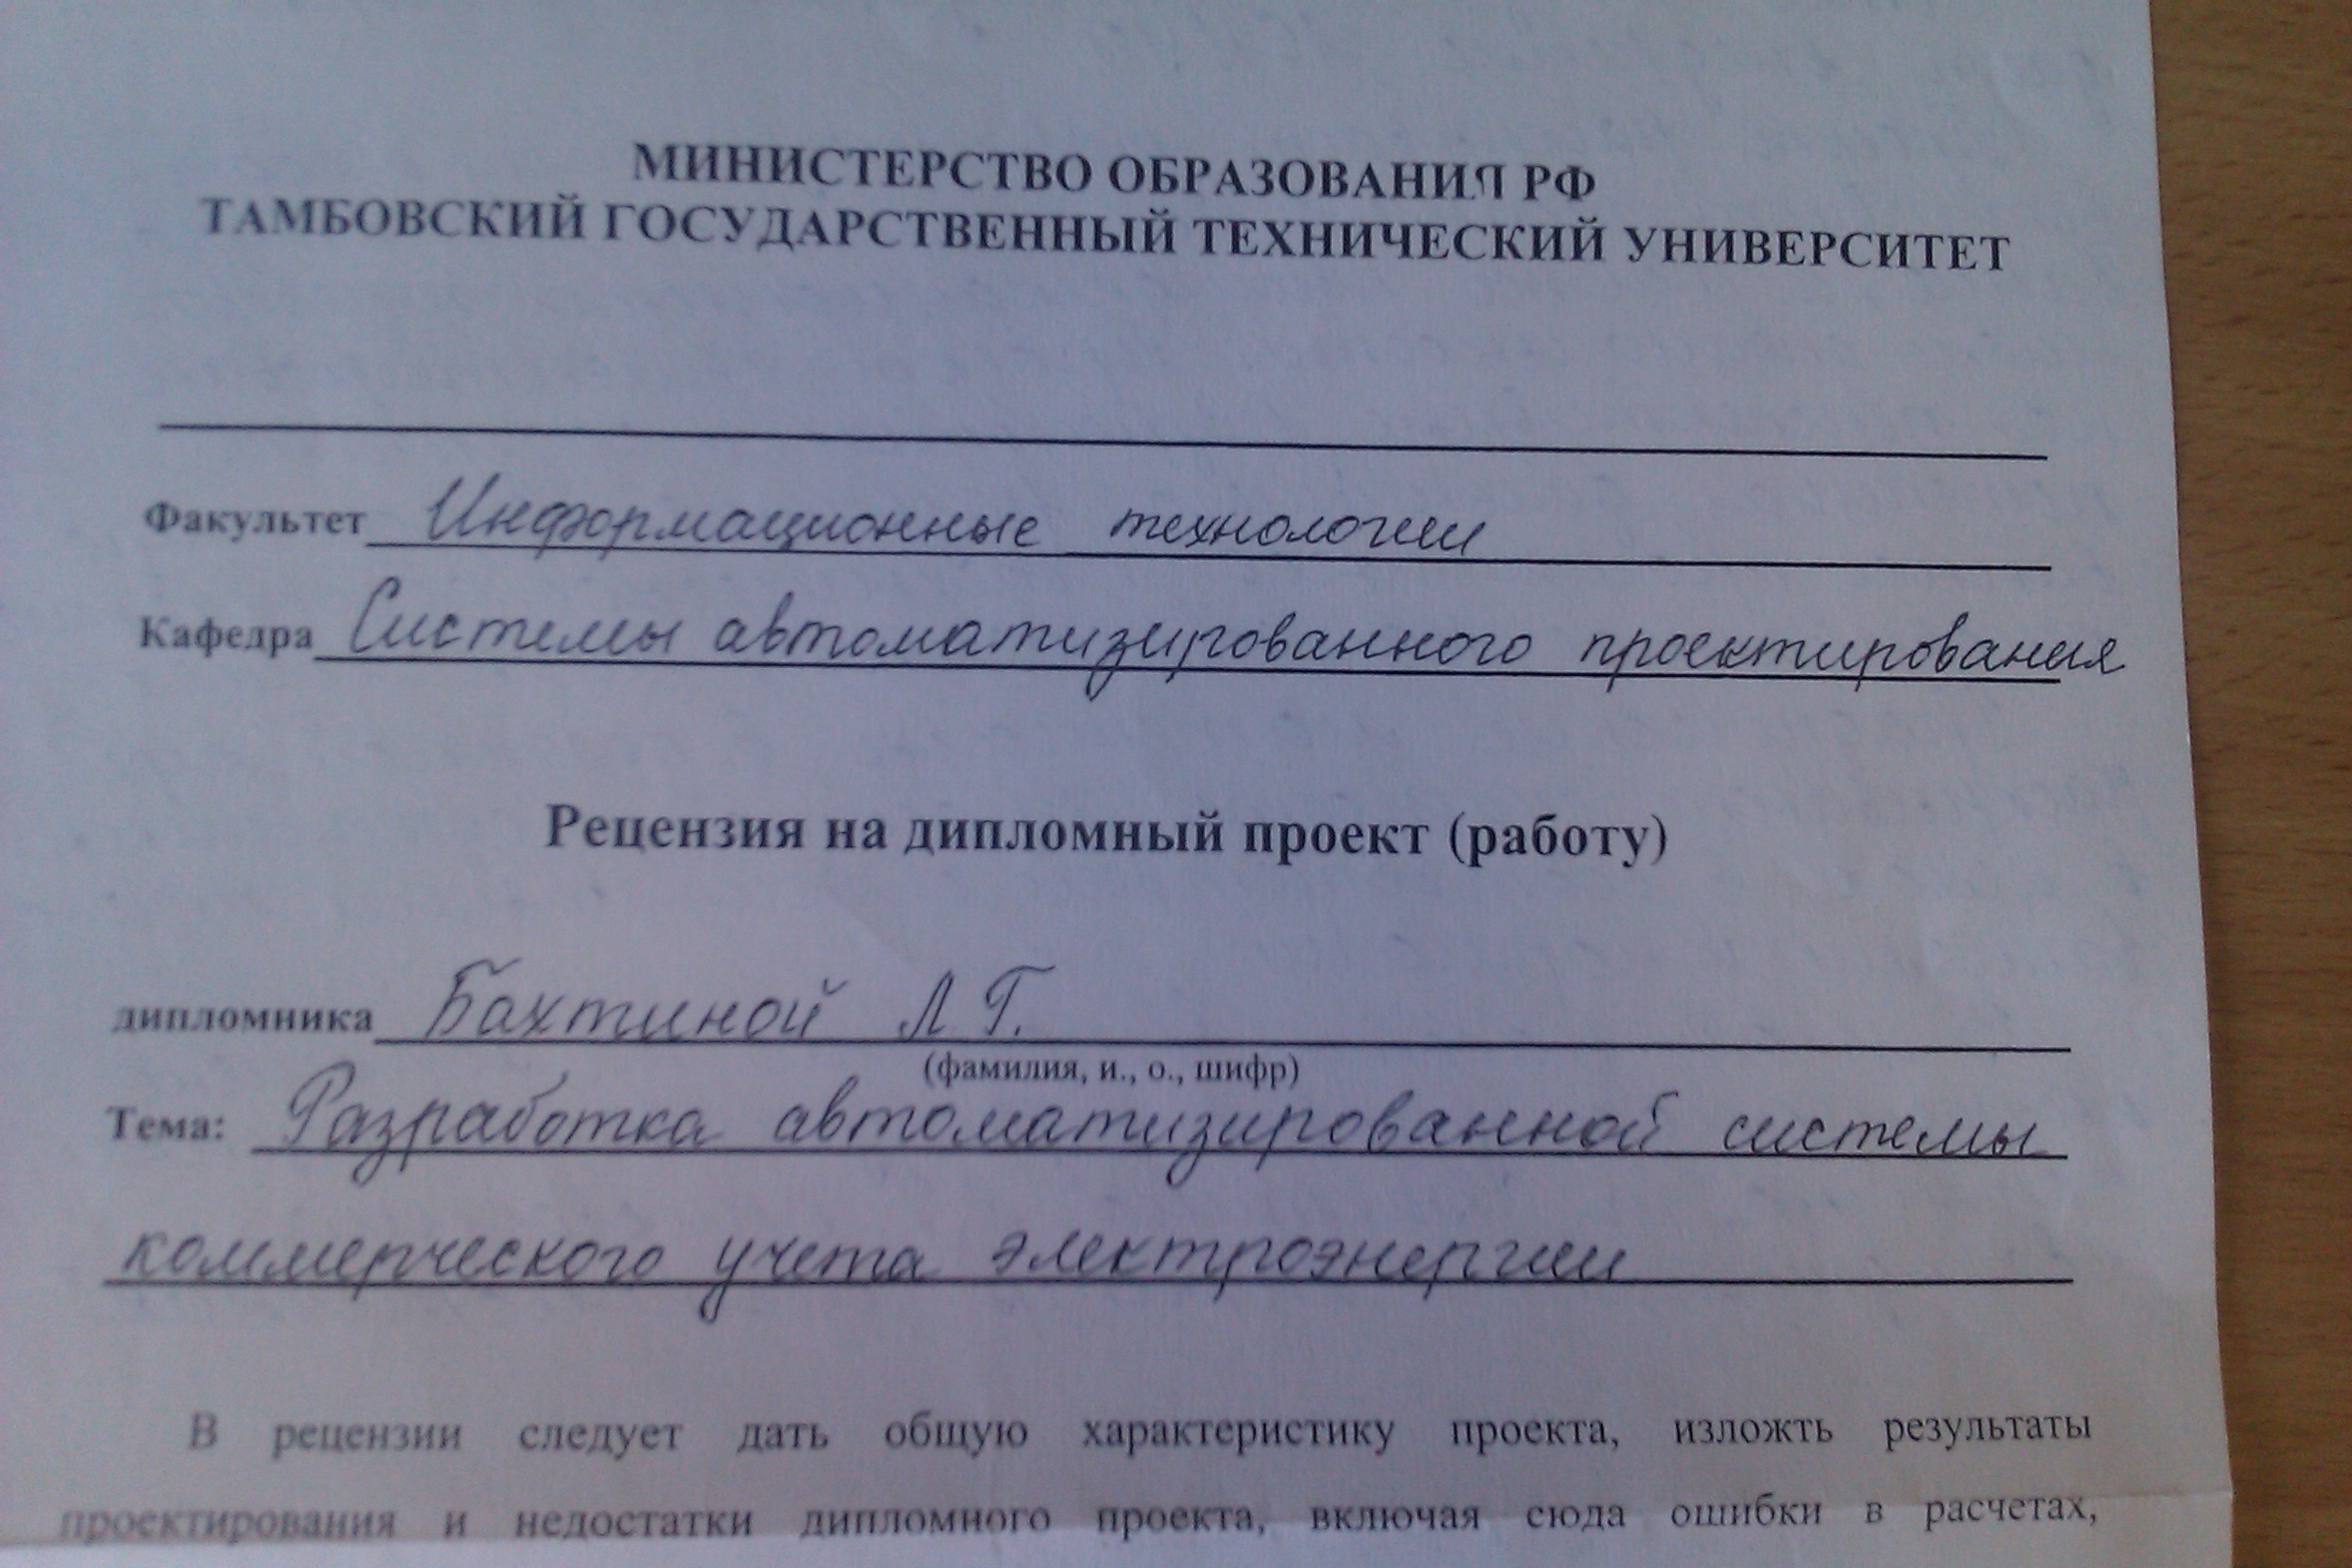 МИНИСТЕРСТВО ОБРАЗОВАНИЯ РФ
ТАМБОВСКИЙ ГОСУДАРСТВЕННЫЙ ТЕХНИЧЕСКИЙ УНИВЕРСИТЕТ
Факультет Информационные технологии
Кафедра Системы автоматизированного проектирования
Рецензия на дипломный проект (работу)
дипломника Бахтиной Л Г.
(фамилия, и., о., шифр)
Тема: Разработка автоматизированной системы
коммерческого учета электроэнергии
В рецензии следует дать общую характеристику проекта, изложть результаты
проектирования и недостатки дипломного проекта, включая сюда ошибки в расчетах,